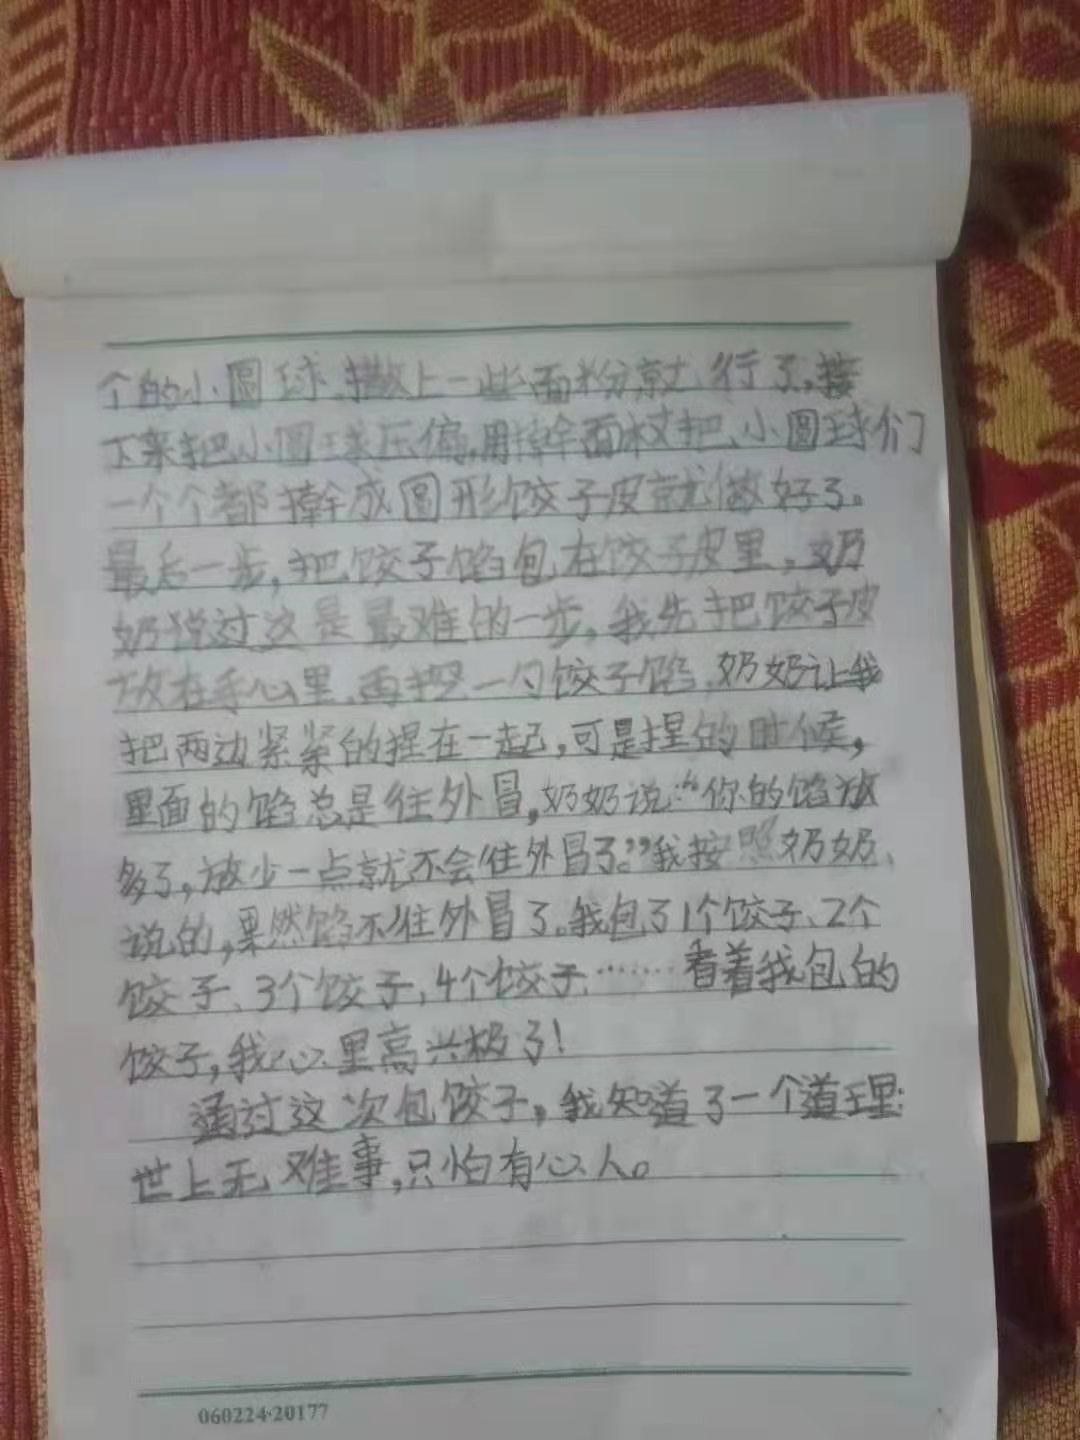 个的小圆球,撒上一些面粉就行了,接
下来把小圆球压偏,用擀面杖把小圆球们
一个个都擀成圆形饺子皮就做好了。
最后一步,把饺子馅包在饺子皮里,奶
奶说过这是最难的一步,我先把饺子皮
放在手心里,再挖一勺饺子馅,奶奶让我
把两边紧紧的捏在一起,可是捏的时候,
里面的馅总是往外冒,奶奶说:“你的馅放
多了,放少一点就不会往外冒了。”我按照奶奶
说的,果然馅不往外冒了。我包了1个饺子、2个
饺子、3个饺子、4个饺子……看着我包的
饺子,我心里高兴极了!
通过这次包饺子,我知道了一个道理:
世上无难事,只怕有心人。
060224-20177